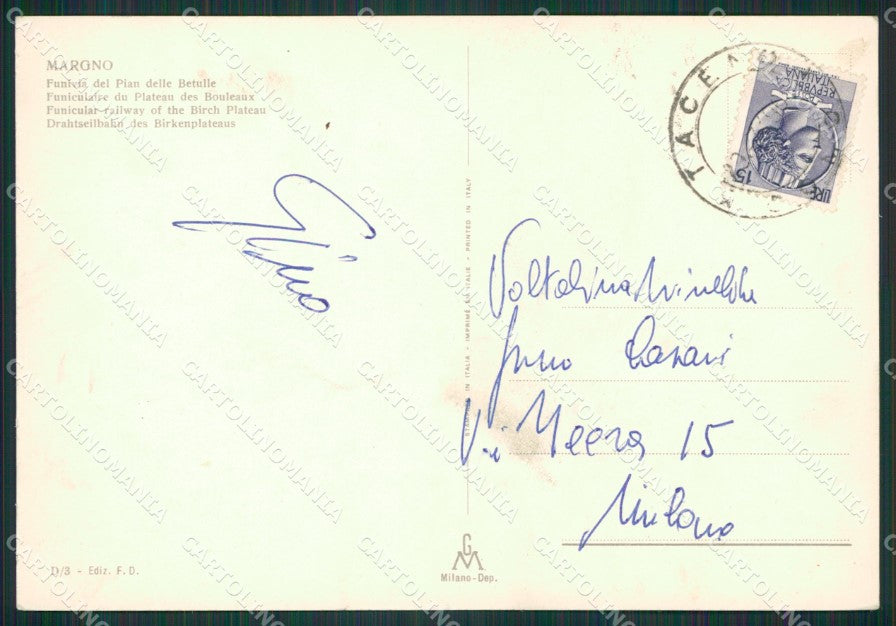 MARGNO
Funivia del Pian delle Betulle
Funiculaire du Plateau des Bouleaux
Funicular railway of the Birch Plateau
Drahtseilbahn des Birkenplateaus
Gino
STAMPATO IN ITALIA - IMPRIMÉ EN ITALIE - PRINTED IN ITALY
TACE
REPVBBLICA
ITALIANA
LIRE 15
Voltolina
15
Milano
D/3 - Ediz. F. D.
GM
Milano-Dep.
CARTOLINOMANIA